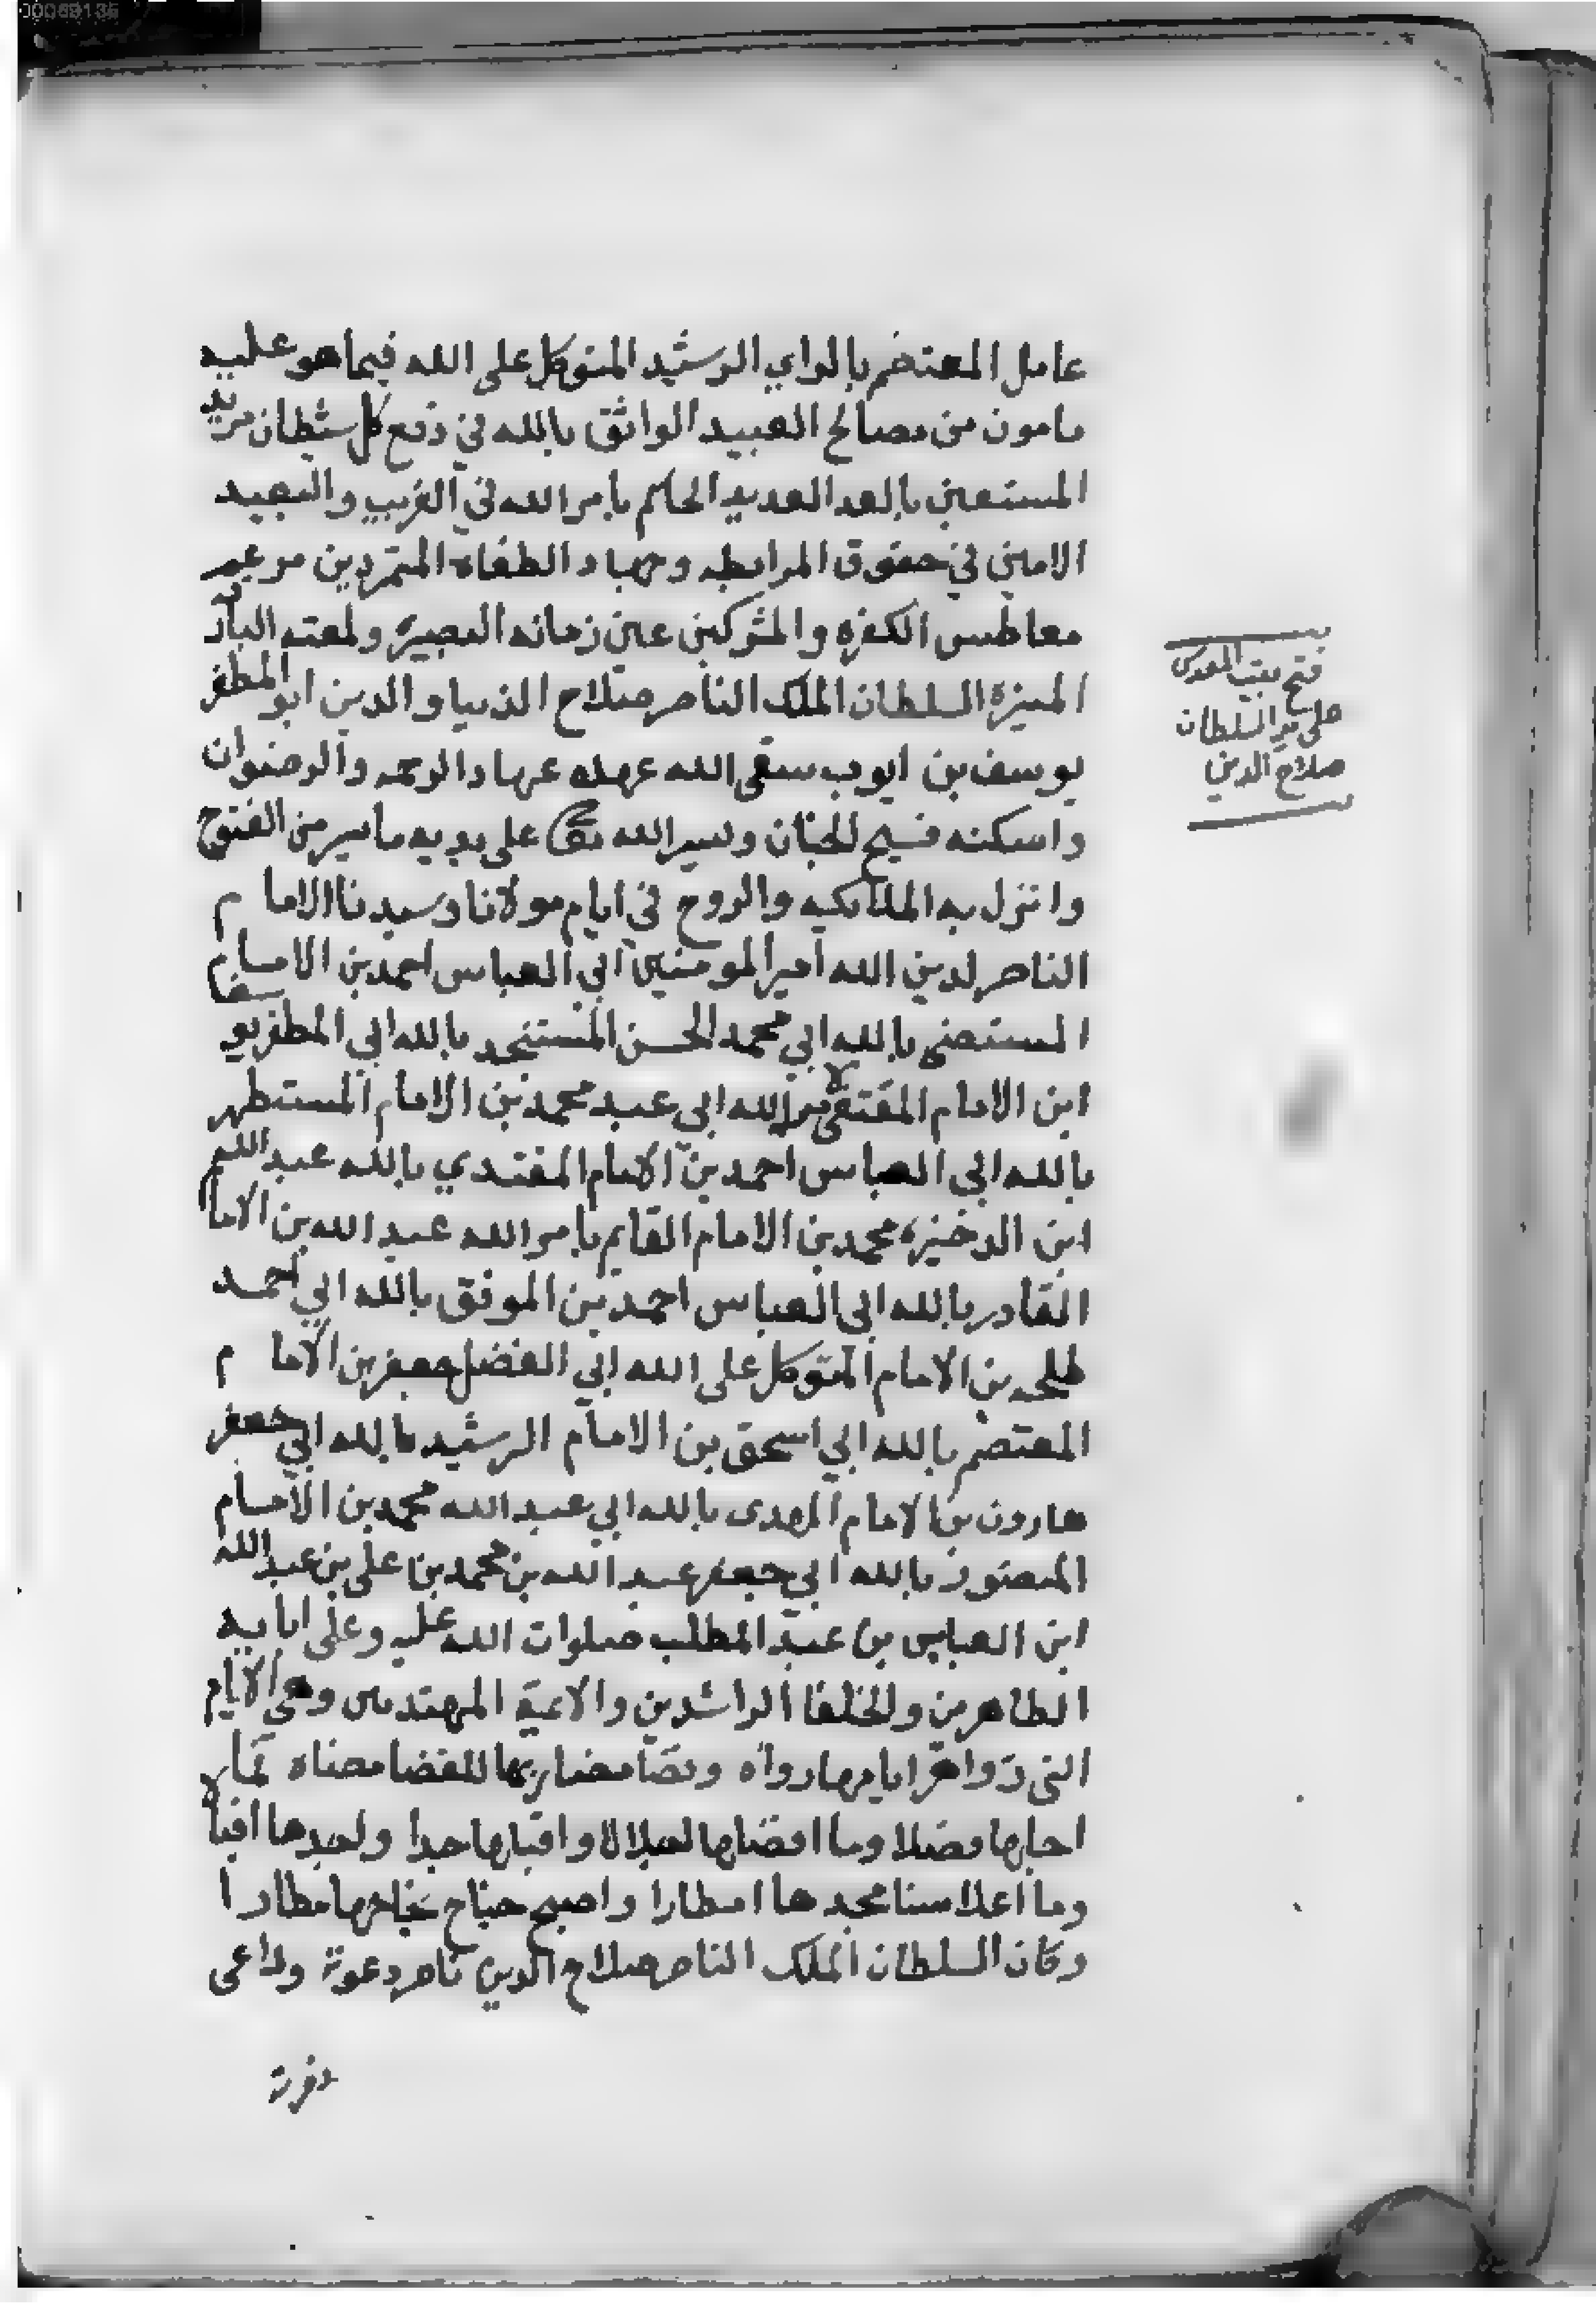 عامل المعتصم بالراي الرشيد المتوكل على الله فيما هو عليه
مامون من مصالح العبيد الواثق بالله في دفع كل شيطان مريد
المستعين بالعد العديد الحاكم بامر الله في القريب والبعيد
الامين في حقوق المرابطه وجهاد الطغاة المتمردين مرغم
معاطس الكفره والمشركين عين زمانه البصيرة ولمعته البارقه
المنيرة السلطان الملك الناصر صلاح الدنيا والدين ابو المظفر
يوسف بن ايوب سقى الله عهده عهاد الرحمه والرضوان
واسكنه فسيح الجنان ويسر الله على يديه ما يسر من الفتوح
وانزل به الملايكه والروح في ايام مولانا وسيدنا الامام
الناصر لدين الله امير المومنين ابي العباس احمد بن الامام
المستضي بالله ابي محمد الحسن المستنجد بالله ابي المظفر يوسف
ابن الامام المقتفي لامر الله ابي عبد محمد بن الامام المستظهر
بالله ابي العباس احمد بن الامام المقتدي بالله عبد الله
ابن الدخيزه محمد بن الامام القايم بامر الله عبد الله بن الامام
القادر بالله ابي العباس احمد بن الموفق بالله ابي احمد
طلحه بن الامام المتوكل على الله ابي الفضل جعفر بن الامام
المعتصم بالله ابي اسحق بن الامام الرشيد بالله ابي جعفر
هارون بن الامام المهدى بالله ابي عبد الله محمد بن الامام
المنصور بالله ابي جعفر عبد الله بن محمد بن على بن عبد الله
ابن العباس بن عبد المطلب صلوات الله عليه وعلى ابايه
الطاهرين والخلفا الراشدين والايمة المهتدين وهي الايام
التى زواهر ايامها رواه للقضا مضاه فما
احلها فضلا وما افضلها لعلالا واقبلها جدا ولجدها اقبالا
وما اعلا سنا مجدها امطارا واصبح جناح نجاحها مطارا
وكان السلطان الملك الناصر صلاح الدين ناصر دعوة وداعى
فتح بيت المقدس
على يد السلطان
صلاح الدين